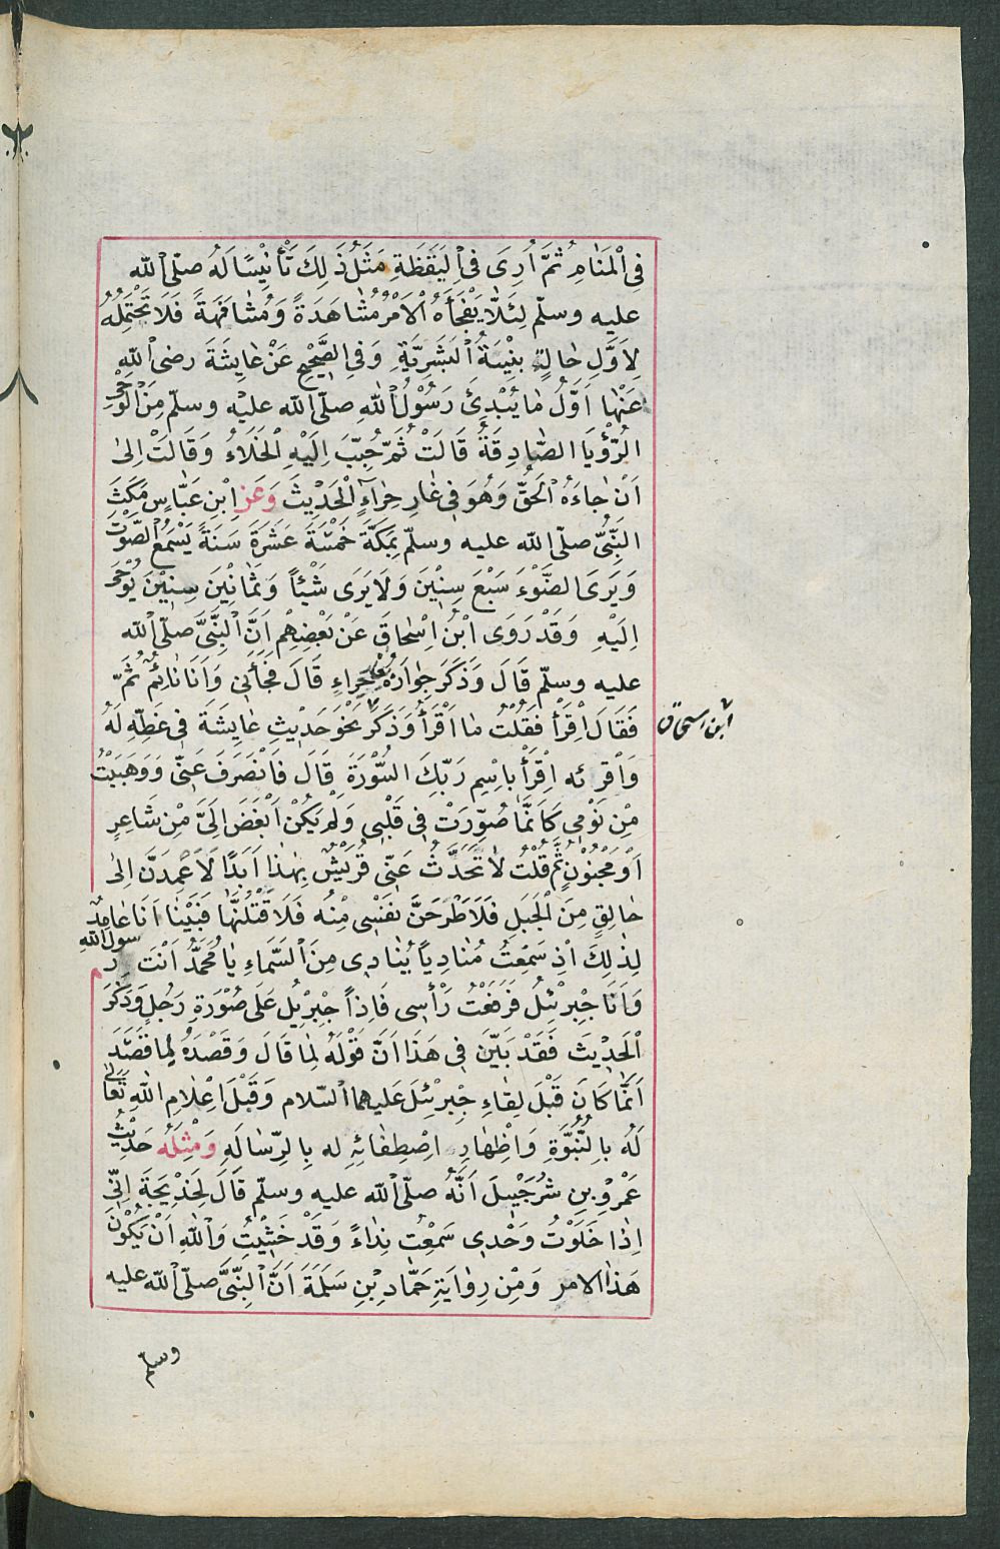 فِى الْمَنَامِ ثُمَّ اُرِىَ فِى الْيَقَظَةِ مَثَلُ ذَلِكَ تَأْنِيْسًا لَهُ صلّى الله
عليه وسلّم لِئَلَّا يَفْجَأَهُ الْاَمْرُ مُشَاهَدَةً وَمُشَافَهَةً فَلَا تَحْتَمِلُهُ
لِاَوَّلِ حَالِةٍ بِنْيَةُ الْبَشَرِيَّةِ وَفِى الصَّحِيْحِ عَنْ عَايِشَةَ رضى اللّهِ
عَنْهَا اَوَّلُ مَا يُبْدِئَ رَسُوْلُ اللهِ صلّى الله عليْه وسلّم مِنَ الْوَحْىِ
الرُّؤْيَا الصَّادِقَةُ قَالَتْ ثُمَّ حُبِّبَ اِلَيْهِ الْخَلَاءُ وَقَالَتْ اِلىٰ
اَنْ جَاءَهُ الْحَقُّ وَهُوَ فِى غَارِ حِرَاءٍ الْحَدِيْثَ وَعَنِ ابْنِ عَبَّاسٍ مَكَثَ
النَّبِىُّ صلّى الله عليه وسلّم بِمَكَّةَ خَمْسَةَ عَشَرَةَ سَنَةً يَسْمَعُ الصَّوْتَ
وَيَرَى الضَّوْءَ سَبْعَ سِنِيْنَ وَلَا يَرَى شَيْئًا وَثَمَانِيْنَ سِنِيْنَ يُوْحَى
اِلَيْهِ وَقَدْ رَوَى ابْنُ اِسْحَاقَ عَنْ بَعْضِهِمْ اَنَّ النَّبِىَّ صلّى الله
عليه وسلّم قَالَ وَذَكَرَ جِوَارَهُ بغار حِرَاءٍ قَالَ فَجَأَنِى وَاَنَا نَائِمٌ ثُمَّ
فَقَالَ اقْرَأْ فَقُلْتُ مَا اَقْرَأُ وَذَكَرَ نَحْوَ حَدِيْثِ عَايِشَةَ فِى غَطِّهِ لَهُ
ابن اسحاق
وَاقْرائه اِقْرَأْ بِاسْمِ رَبِّكَ السُّوْرَةَ قَالَ فَانْصَرَفَ عَنِّى وَوَهَبَتْ
مِنْ نَوْمِى كَاَنَّمَا صُوِّرَتْ فِى قَلْبِى وَلَمْ يَكُنْ اَبْغَضَ اِلَىَّ مِنْ شَاعِرٍ
اَوْ مَجْنُوْنٍ ثُمَّ قُلْتُ لَا تَحَدَّثُ عَنِّى قُرَيْشٌ بِهٰذَا اَبَدًا لَاَعْمِدَنَّ اِلىٰ
حَالِقٍ مِنَ الْجَبَلِ فَلَاَطْرَحَنَّ نَفْسِى مِنْهُ فَلَاَقْتُلَنَّهَا فَبَيْنَا اَنَا عَامِدٌ
لِذٰلِكَ اِذْ سَمِعْتُ مُنَادِيًا يُنَادِى مِنَ السَّمَاءِ يَا مُحَمَّدُ اَنْتَ رسول الله
وَاَنَا جِبْرِئِلُ فَرَفَعْتُ رَأْسِى فَاِذًا جِبْرِيْلُ عَلَى صُوْرَةِ رَجُلٍ وَذَكَرَ
الْحَدِيْثَ فَقَدْ بَيَّنَ فِى هَذَا اَنَّ قَوْلَهُ لِمَا قَالَ وَقَصْدَهُ لِمَا قَصَدَ
اَنَّمَا كَانَ قَبْلَ لِقَاءِ جِبْرِئِلَ عَليهما السّلام وَقَبْلَ اِعْلَامِ اللهِ تَعَالَى
لَهُ بِالنُّبُوَّةِ وَاِظْهَارِهِ اصْطِفَائِهِ له بِالرِّسَالَةِ وَمْثِلَهُ حَدِيْثُ
عَمْرِو بْنِ شُرَحْبِيلَ اَنَّهُ صلّى الله عليه وسلّم قَالَ لِخَدِيْجَةَ اِنِّى
اِذَا خَلَوْتُ وَحْدِى سَمِعْتُ نِدَاءً وَقَدْ خَشِيْتُ وَاللهِ اَنْ يَكُوْنَ
هَذَا الامر وَمِنْ رِوَايَةِ حَمَّادِ بْنِ سَلَمَةَ اَنَّ النَّبِىَّ صلّى الله عليه
وسلّم